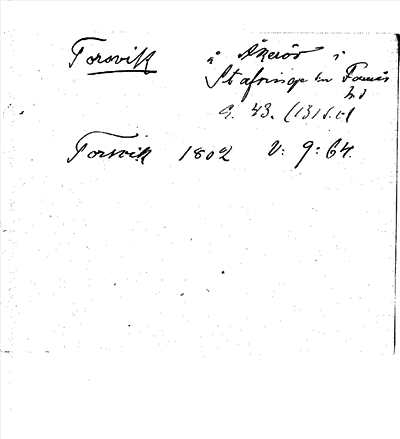 Torsvik å Åkerös i
Stafsinge sn Faurås
hd
G. 43.
Torsvik 1802 V: 9: 64.